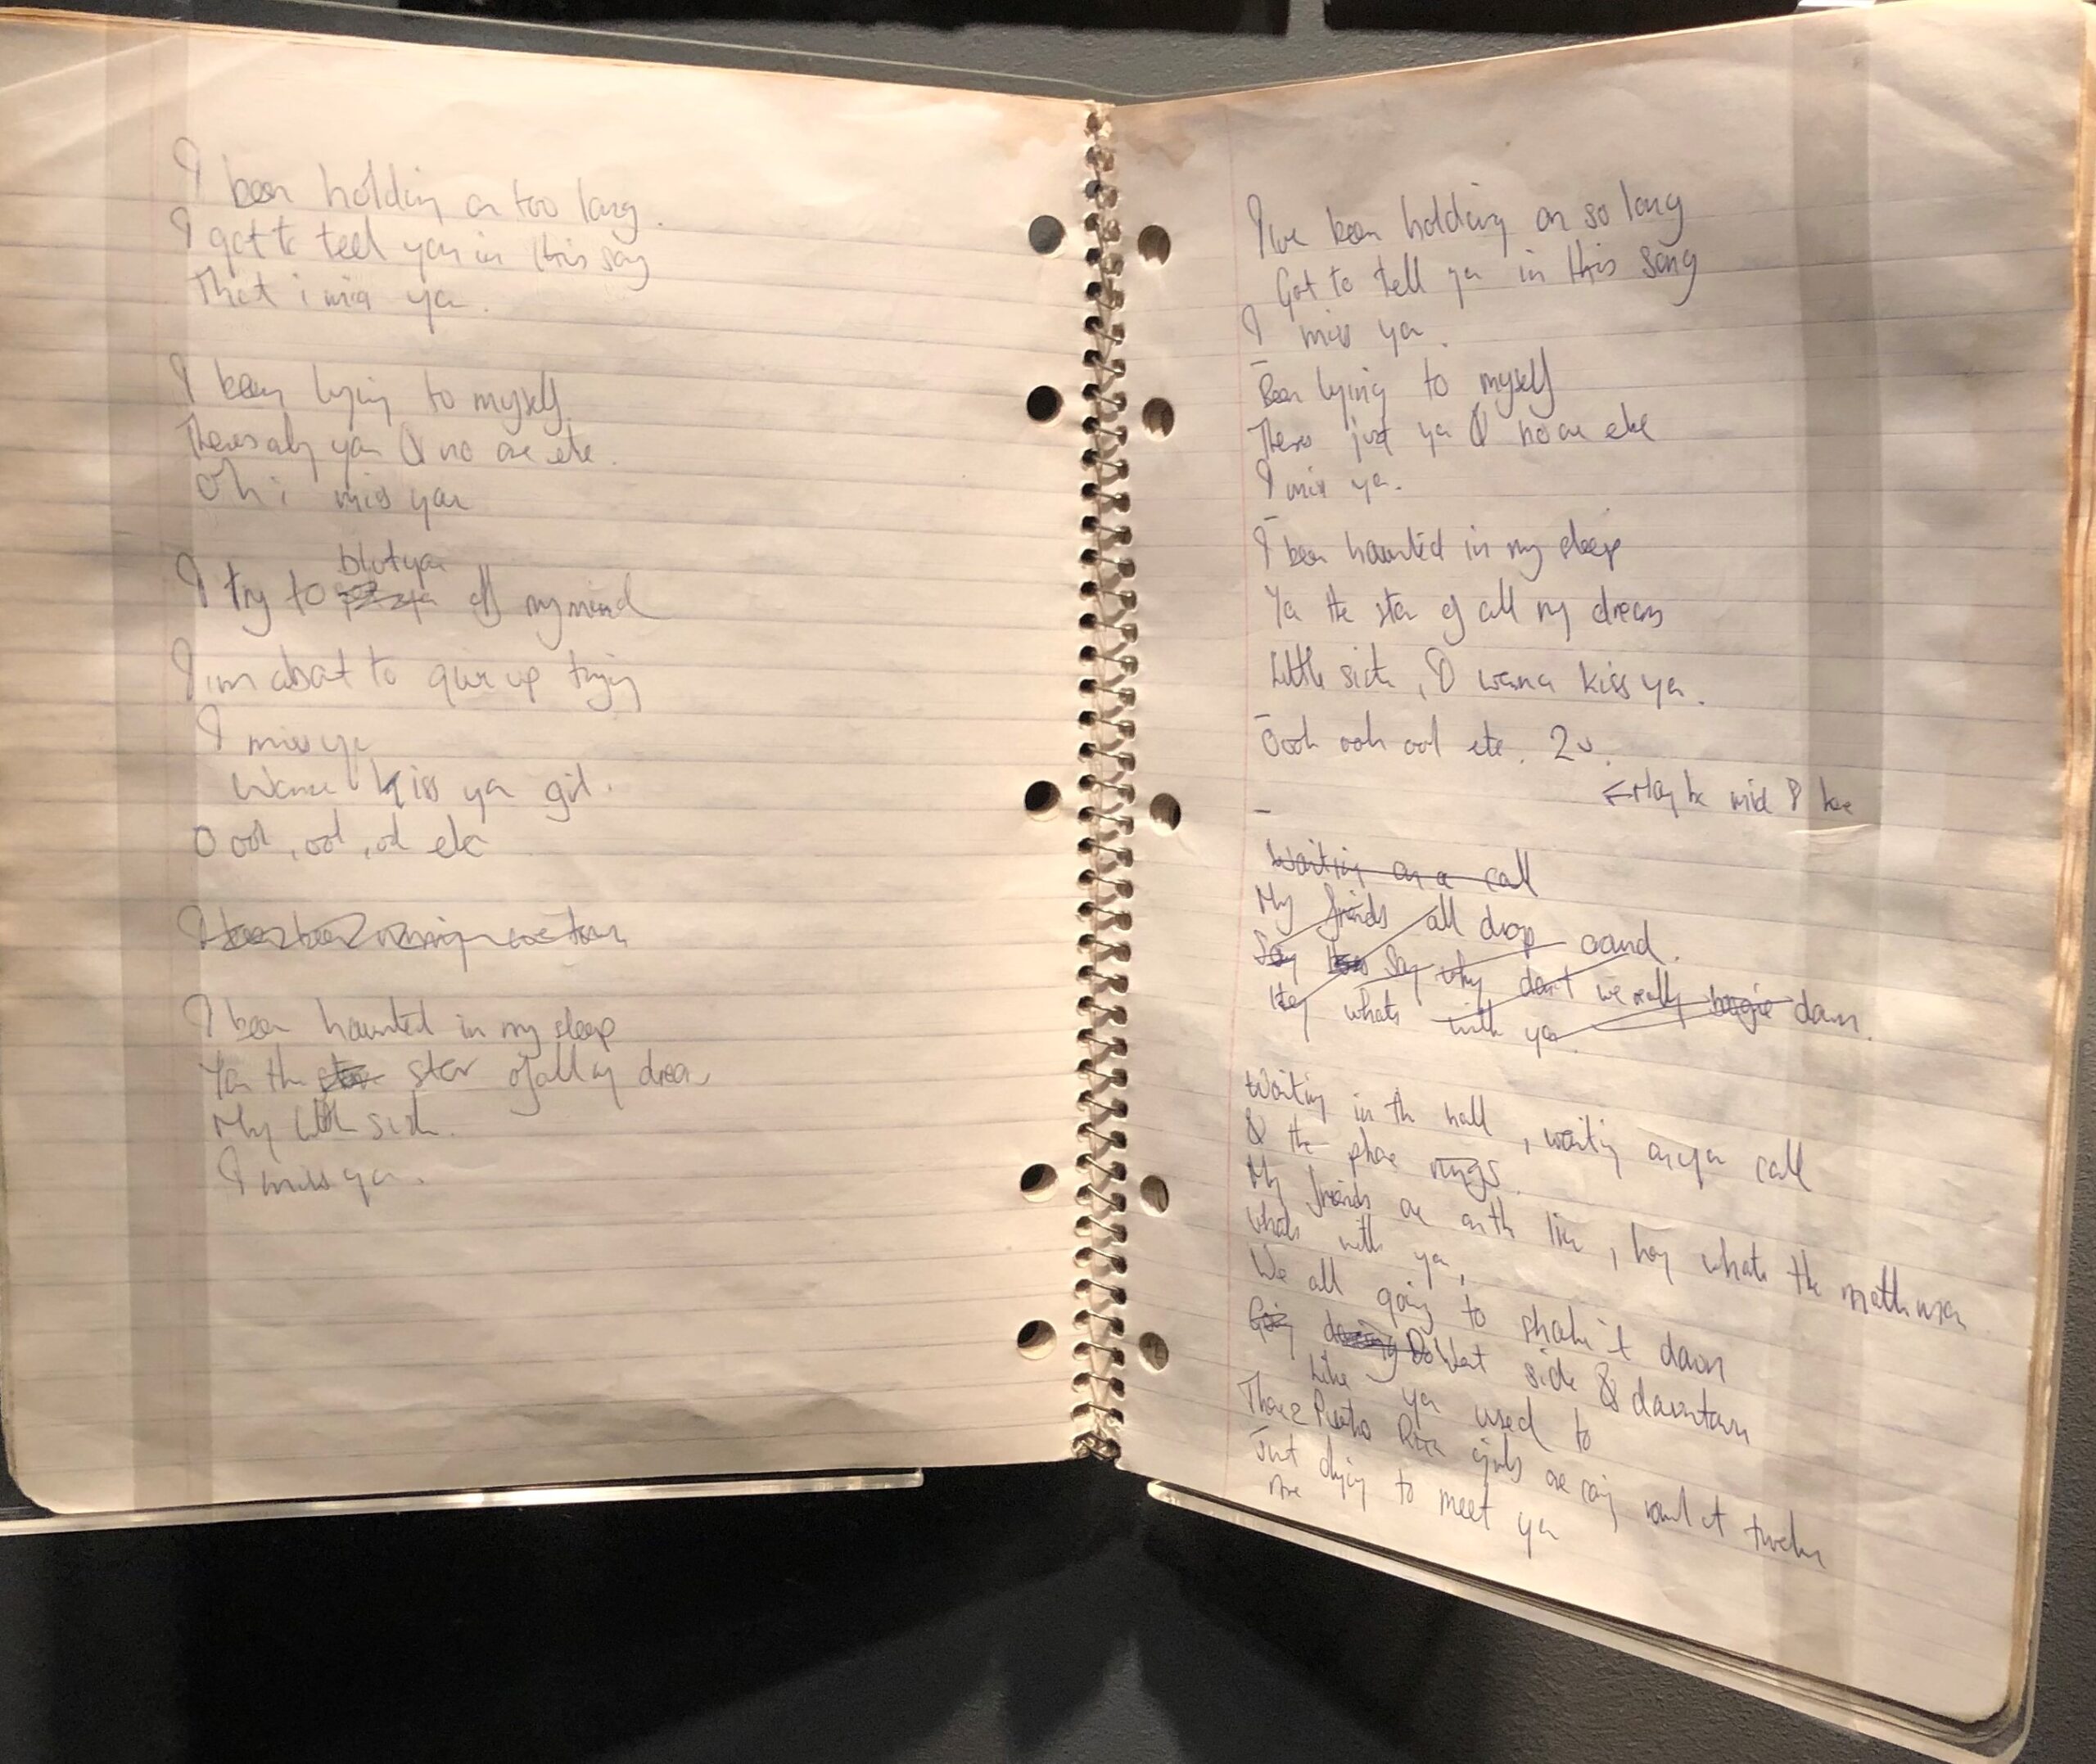 I been holding on too long.
I got to tell you in this song
That i miss ya.
I been lying to myself
Theres only you & no one else.
Oh i miss you
blot ya
I try to off my mind
I im about to give up trying
I miss ya
Wanna kiss ya girl.
Oooh, ooh, ooh etc
I been haunted in my sleep
You the star star of all my dream
My little sister.
I miss ya.
I've been holding on so long
Got to tell ya in this song
I miss ya.
Been lying to myself
Theres just ya & no one else
I miss ya.
I been haunted in my sleep
Ya the star of all my dreams
Little sister, I wanna kiss ya.
Oooh ooh ooh etc. 2
← Maybe mid 8 here
Waiting on a call
My friends all drop around.
Say Say why don't we really boogie down.
Hey whats with ya.
Waiting in the hall, waiting on ya call
& the phone rings.
My friends are on the line, hey whats the matter man
whats with ya,
We all going to shake it down
Going dancing West side & downtown
Like ya used to
There's 2 Puerto Rican girls are coming round at twelve
Just dying to meet ya